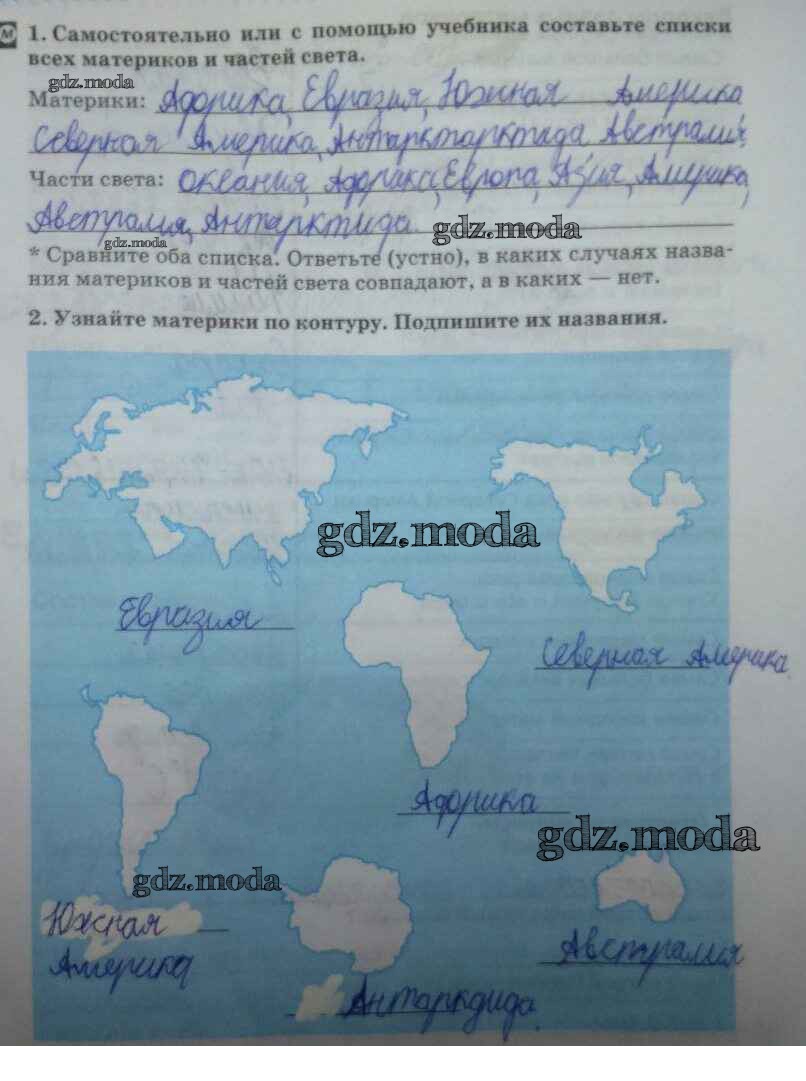 1. Самостоятельно или с помощью учебника составьте списки
всех материков и частей света.
gdz.moda
Материки: Африка, Евразия, Южная Америка
Северная Америка, Антарктарктида Австралия.
Части света: Океания, Африка, Европа, Азия, Америка,
Австралия, Антарктида. gdz.moda
gdz.moda
* Сравните оба списка. Ответьте (устно), в каких случаях назва-
ния материков и частей света совпадают, а в каких — нет.
2. Узнайте материки по контуру. Подпишите их названия.
gdz.moda
Евразия
Северная Америка.
Африка
gdz.moda
gdz.moda
Южная
Америка
Австралия
Антаркдида.